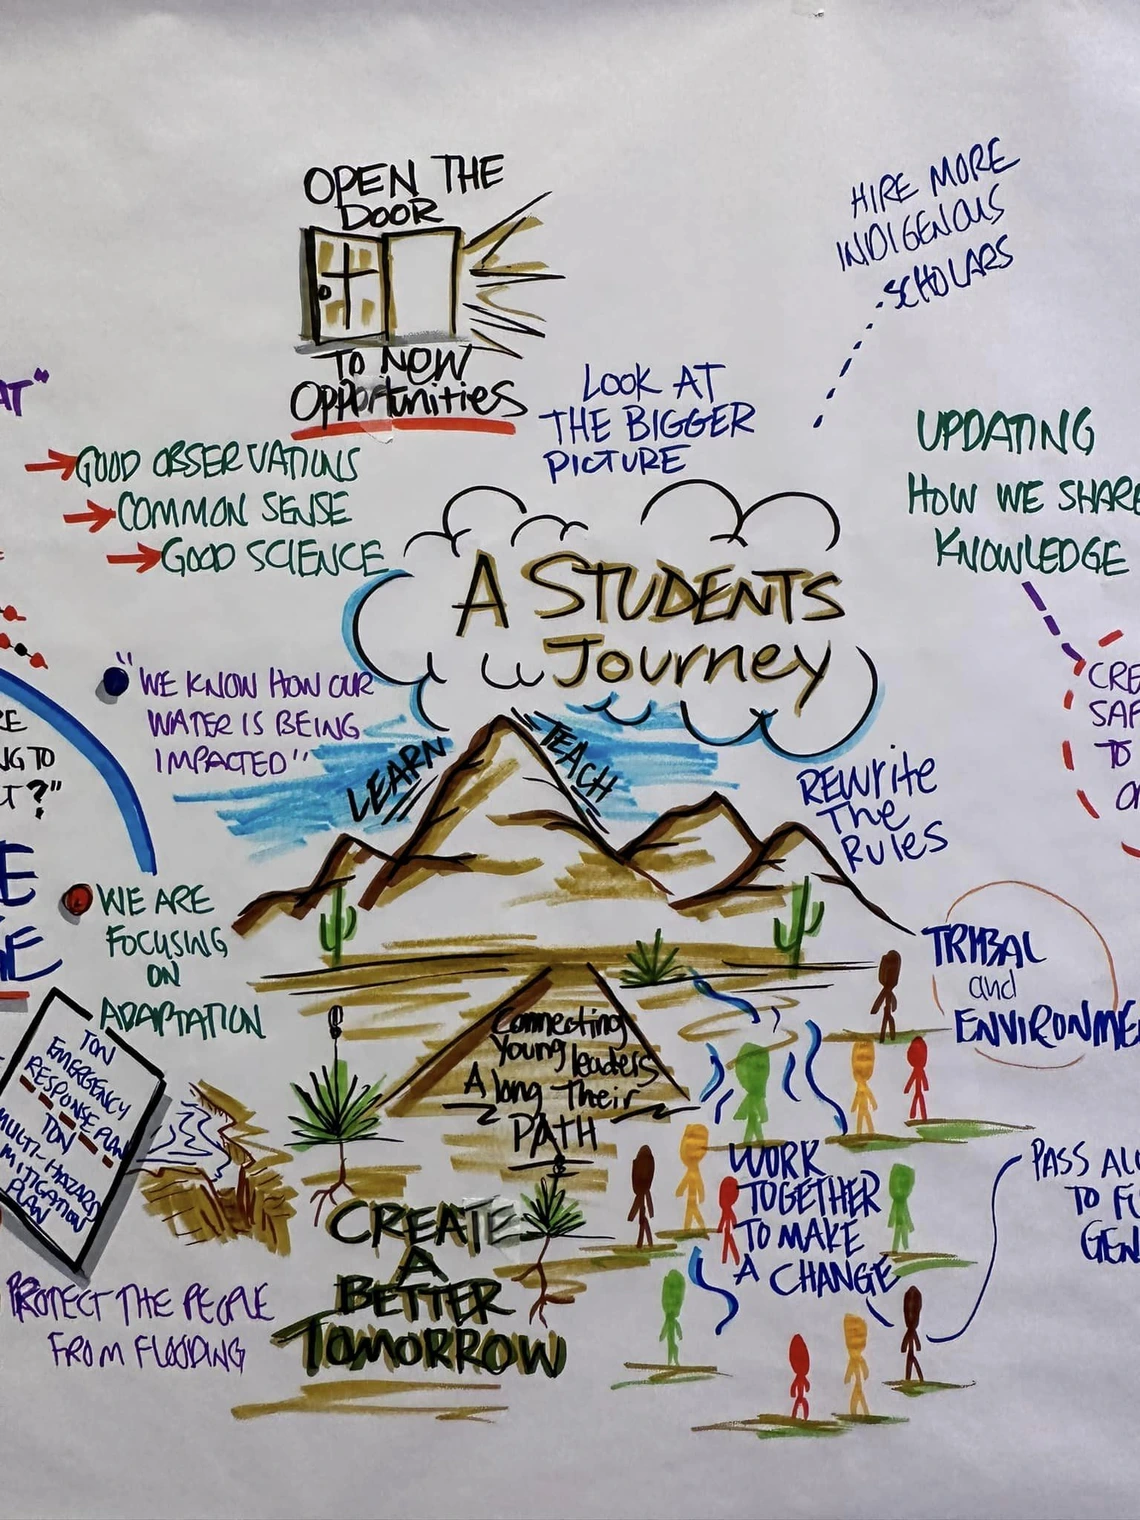 OPEN THE
DOOR
TO NEW
OPPortunities
HIRE MORE
INDIGENOUS
SCHOLARS
LOOK AT
THE BIGGER
PICTURE
AT"
→GOOD OBSERVATIONS
→COMMON SENSE
→GOOD SCIENCE
UPDATING
HOW WE SHARE
KNOWLEDGE
A STUDENTS
Journey
"WE KNOW HOW OUR
WATER IS BEING
IMPACTED"
LEARN
TEACH
REWrite
The
RULES
CRE
SAF
TO
NG TO
CT?"
WE ARE
FOCUSING
ON
ADAPTATION
TRIBAL
and
ENVIRONME
Connecting
Young leaders
Along Their
PATH
TON
EMERGENCY
RESPONSE PLAN
TON
MULTI-HAZARD
MITIGATION
PLAN
PROTECT THE PEOPLE
FROM FLOODING
CREATE
A
BETTER
TOMORROW
WORK
TOGETHER
TO MAKE
A CHANGE
PASS ALO
TO FU
GEN